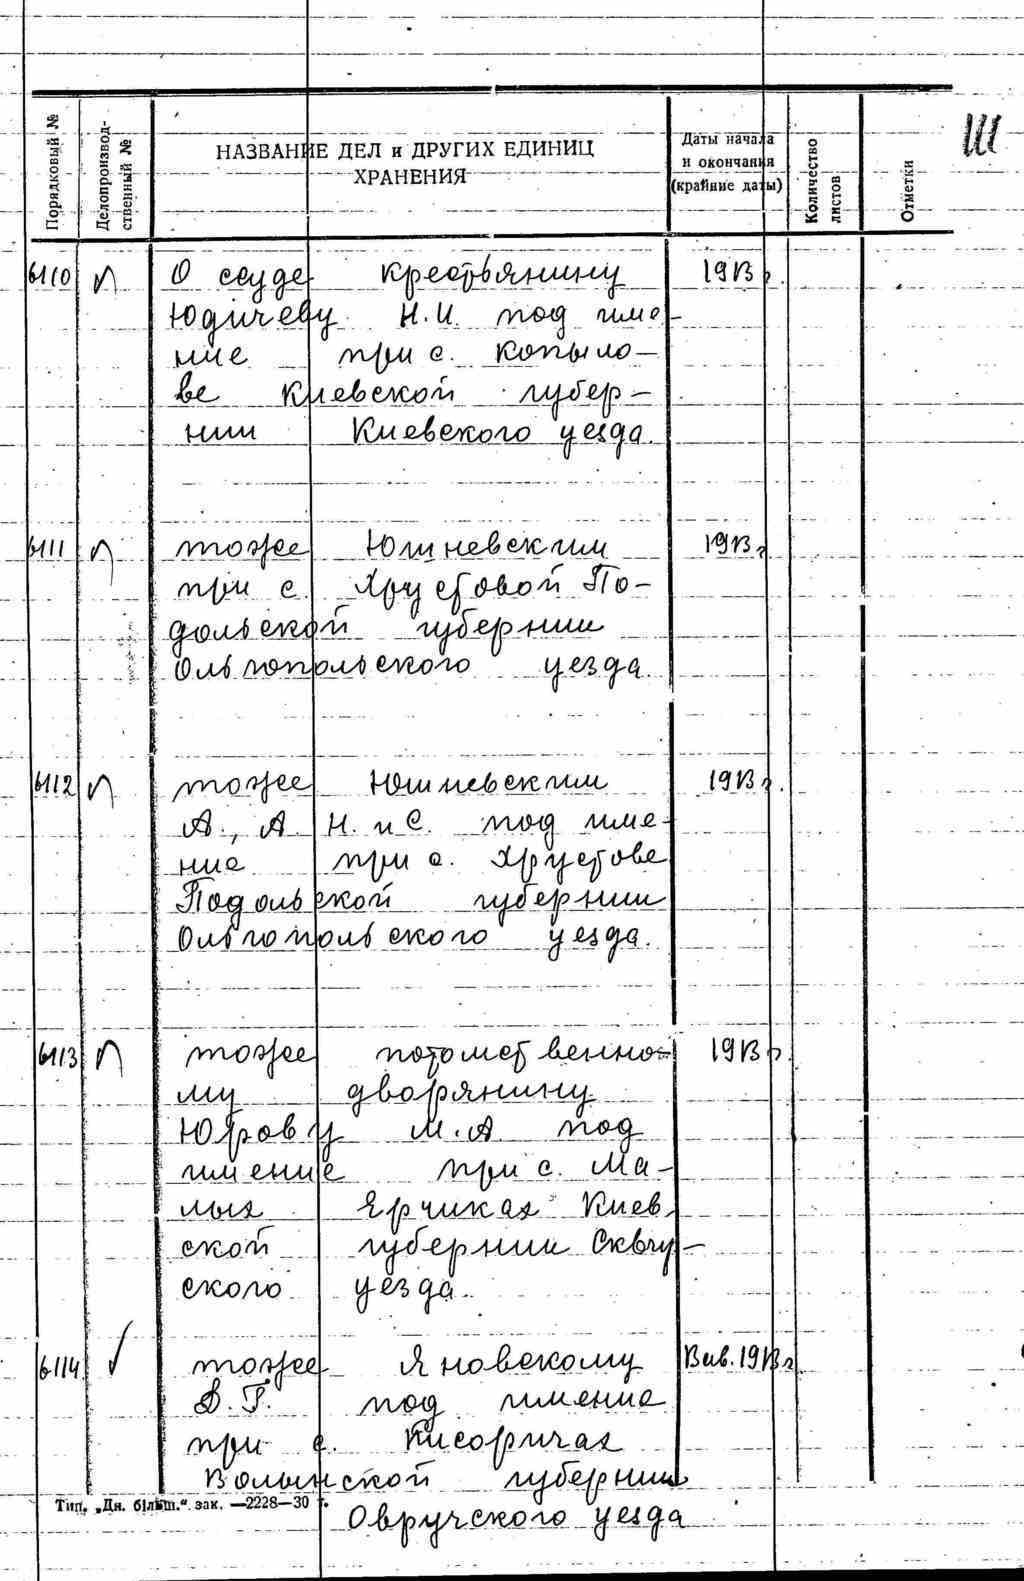 III
Порядковый №
Делопроизвод-
ственный №
НАЗВАНИЕ ДЕЛ и ДРУГИХ ЕДИНИЦ
ХРАНЕНИЯ
Даты начала
и окончания
(крайние даты)
Количество
листов
Отметки
6110 О ссуде крестьянину 1913 г.
Юдичеву Н.И. под име-
ние при с. Копыло-
ве Киевской губер-
нии Киевского уезда.
6111 тоже Юшневским 1913 г.
при с. Хрустовой По-
дольской губернии
Ольгопольского уезда.
6112 тоже Юшневским 1913 г.
А., А. Н. и С. под име-
ние при с. Хрустове
Подольской губернии
Ольгопольского уезда.
6113 тоже потомственно- 1913 г.
му дворянину
Юрову М.А. под
имение при с. Ма-
лых Ерчиках Киев-
ской губернии Сквир-
ского уезда.
6114 тоже Яновскому 1913 г.
В.Г. под имение
при с. Кисоричах
Волынской губернии
Овручского уезда
Тип. „Дн. більш.“ зак. —2228—30 г.